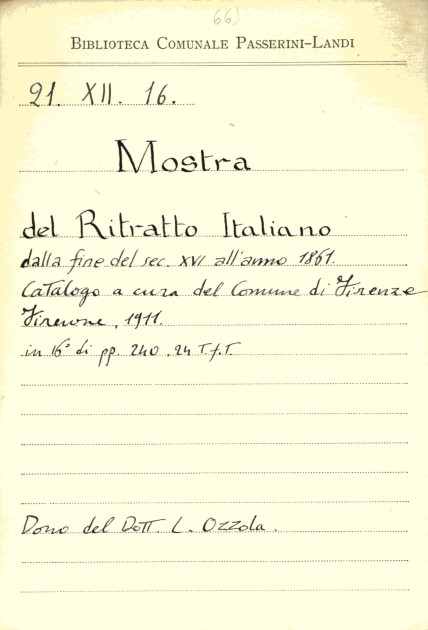 66)
BIBLIOTECA COMUNALE PASSERINI-LANDI
21. XII. 16.
Mostra
del Ritratto Italiano
dalla fine del sec. XVI all'anno 1861.
Catalogo a cura del Comune di Firenze
Firenze, 1911.
in 16° di pp. 240. 24 T.f.T.
Dono del Dott. L. Ozzola.